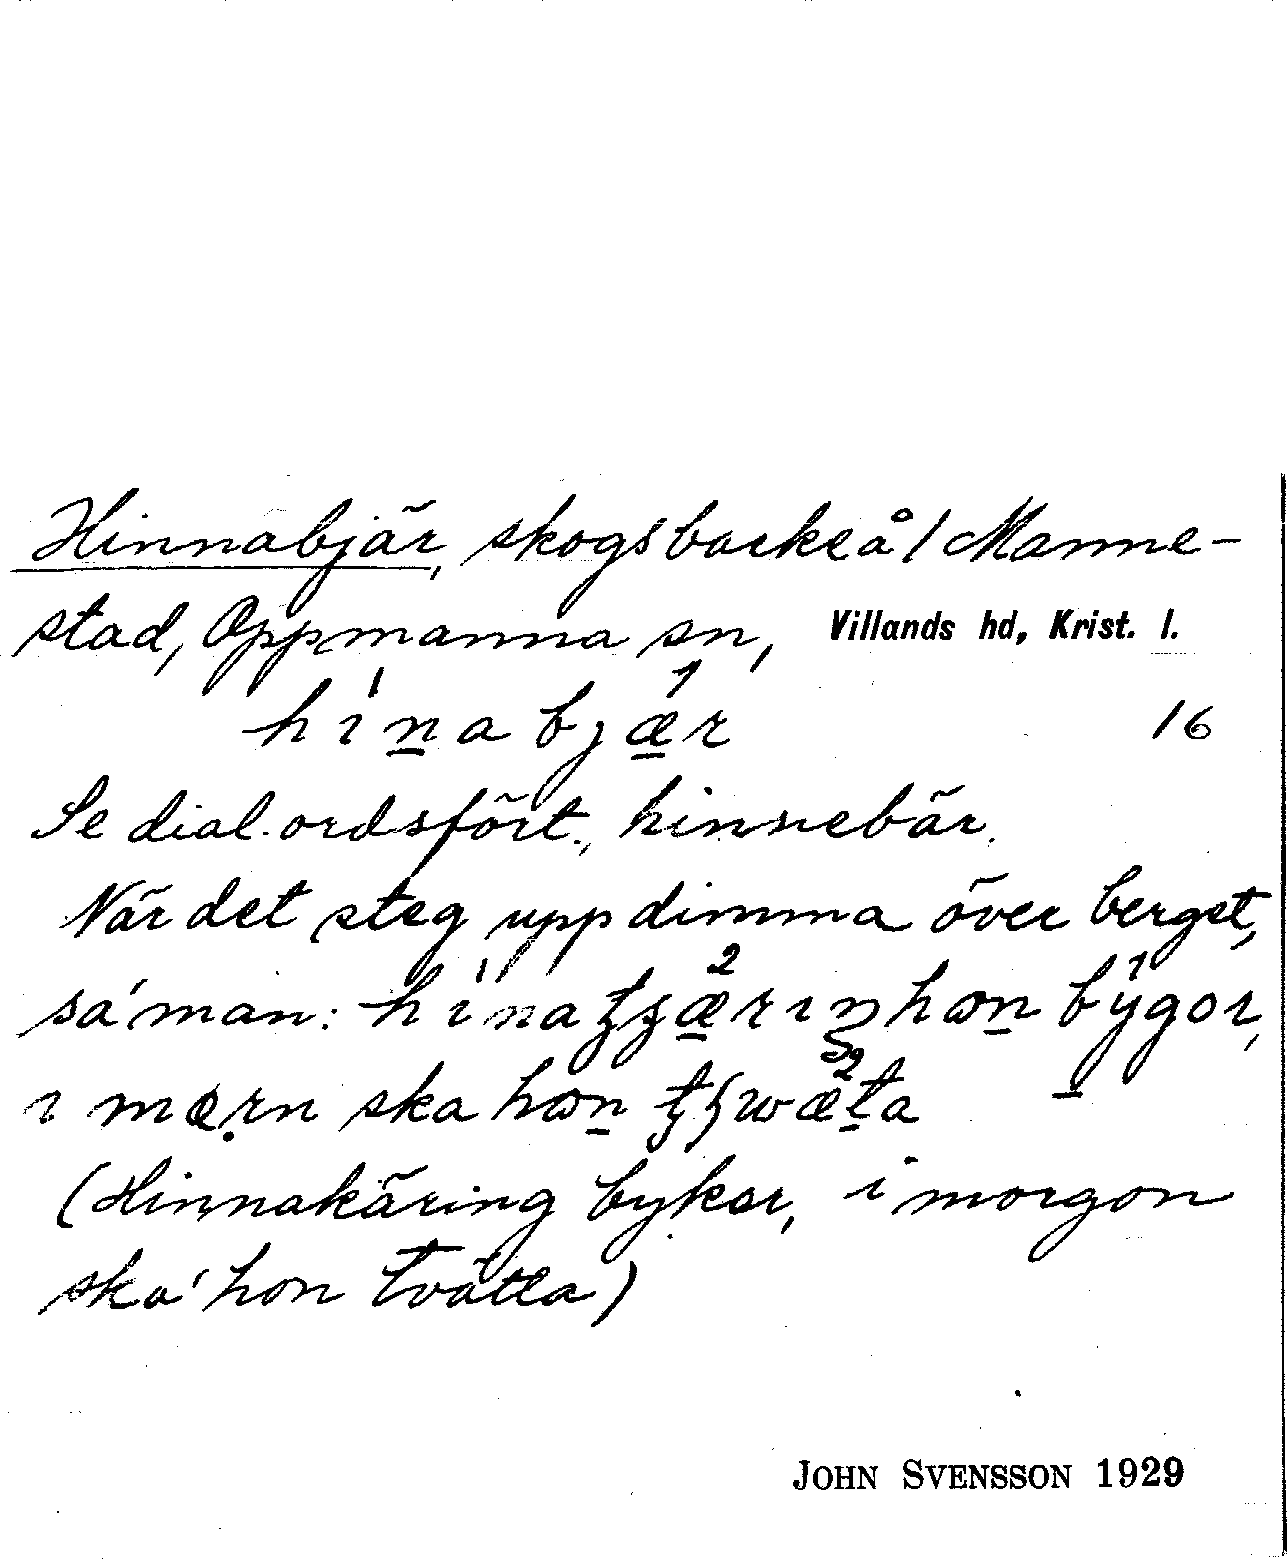 Hinnabjär, skogsbacke å / Manne-
stad, Oppmanna sn, Villands hd, Krist. l.
hinabjær 16
Se dial. ordsfört., hinnebär.
När det steg upp dimma över berget,
sa' man: hon
ska hon
(Hinnakäring byker, i morgon
ska' hon tvätta)
JOHN SVENSSON 1929